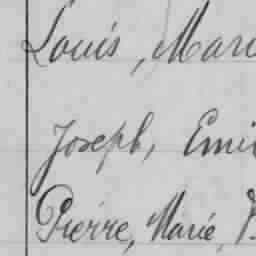 Louis, Mari
Joseph, Emi
Pierre, Marie,